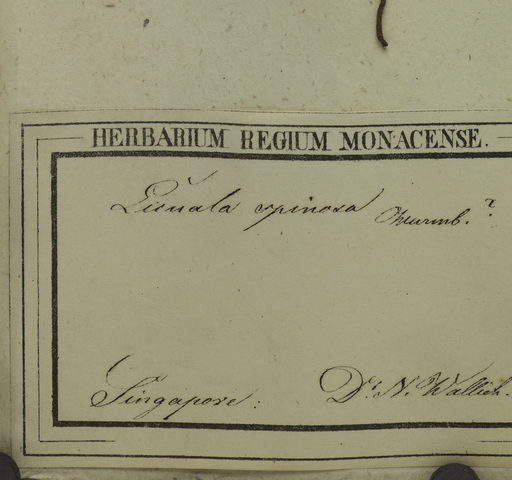 HERBARIUM REGIUM MONACENSE.
Licuala spinosa Wurmb. ?
Singapore. Dr. N. Wallich.